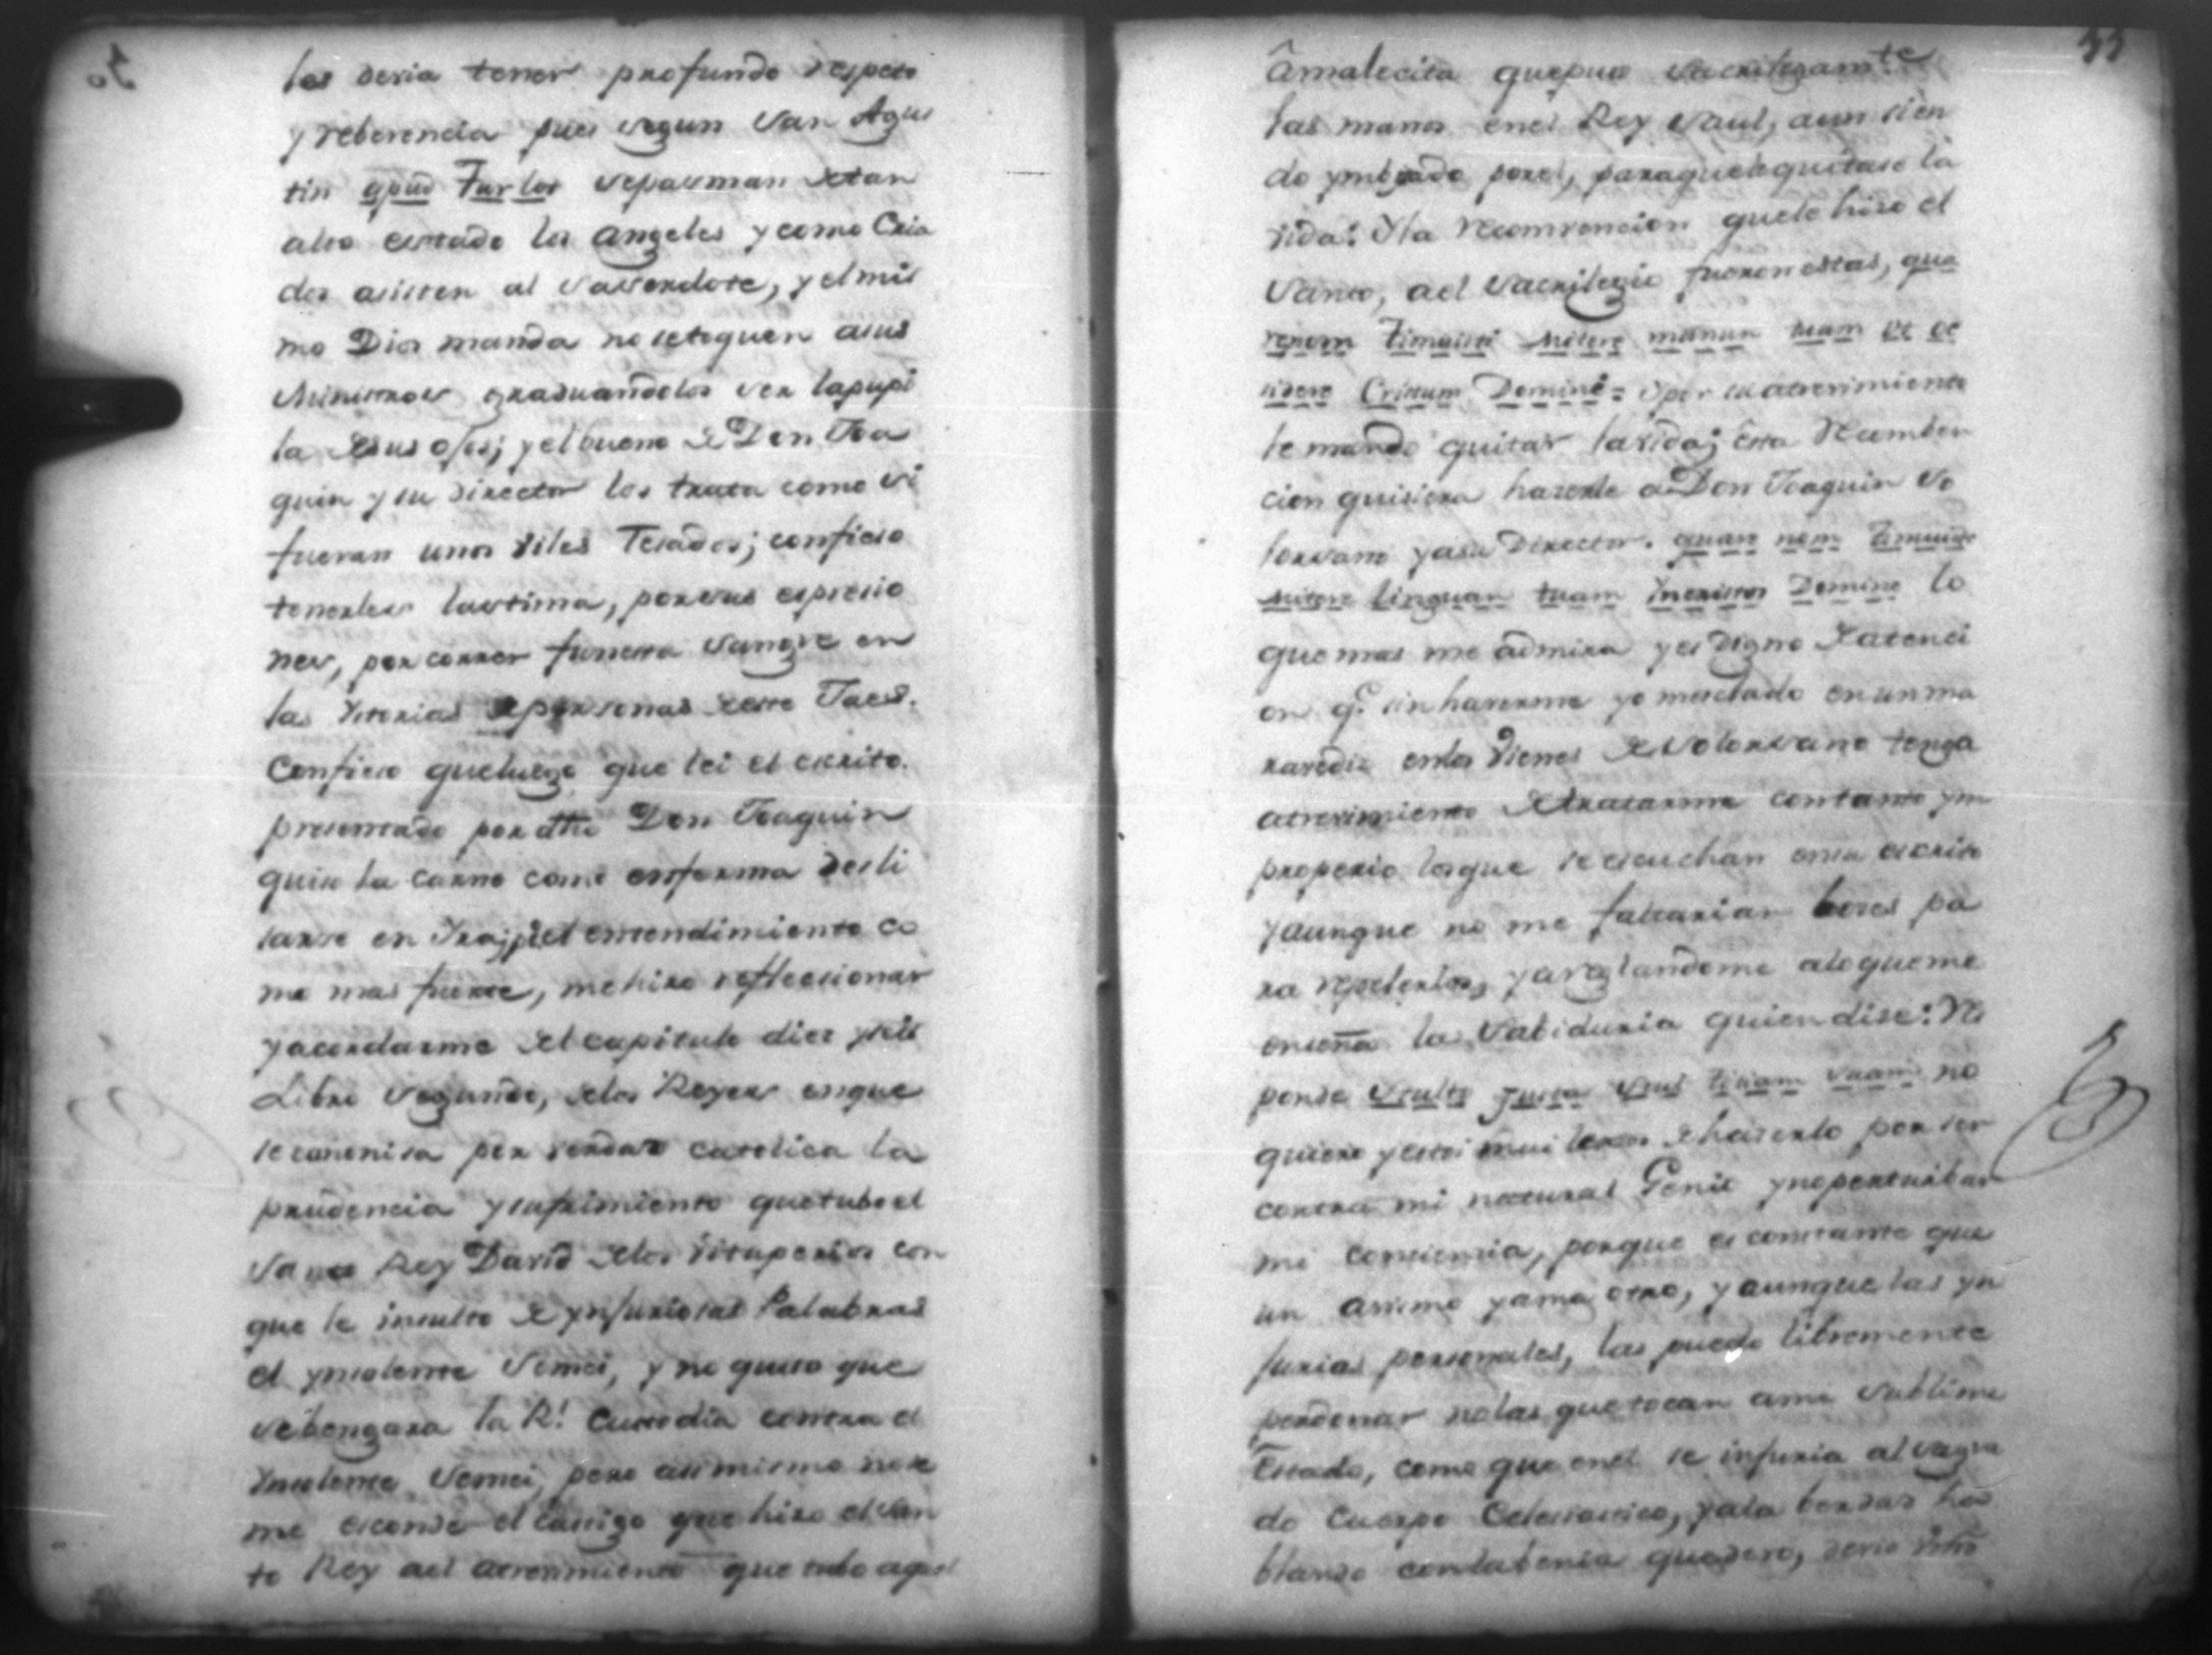 les devia tener profundo respeto
y reberencia pues segun San Agus
tin apud Tarlos se pasman de tan
alto estado los angeles y como Cria
dos asisten al Saserdote, y el mis
mo Dios manda no se toquen a sus
Ministros graduandolos ser la pupi
la de sus ojos; y el bueno de Don Joa
quin y su director los trata como si
fueran unos viles Teiados; confieso
tenerles lastima, por sus espresio
nes, por correr funesta sangre en
las Ystorias de personas de este Jaes.
Confieso que luego que lei el escrito
presentado por dho Don Joaquin
quiso la carne como enferma desli
sarse en Yra; pr el entendimiento co
mo mas fuerte, me hizo reflecsionar
y acordarme del capitulo diez y seis
Libro Segundo, de los Reyes en que
se canonisa por verdad catolica la
prudencia y sufrimiento que tubo el
Santo Rey David de los vituperios con
que le insulto de ynjuriosas Palabras
el ynsolente Semei, y no quiso que
se bengara la Rl Custodia contra el
Ynsolente Semei, pero asi mismo no se
me esconde el castigo que hizo el San
to Rey ael atrevimiento que tubo aquel
50
55
âmalecita que puso sacrilegamte
las manos en el Rey Saul, aun sien
do ymbiado por el, para que le quitase la
vida: Y la recomvencion que le hiso el
Santo, ael Sacrilegio fueron estas, qua
renom timuisti mitere manun tuam et oc
sidere Cristum Domini = Y por su atrevimiento
le mando quitar la vida; esta recomben
cion quisiera haserle a Don Joaquin So
lorsano y a su Director. quare nom timuiste
mitere linguan tuam Yncristos Domine lo
que mas me admira y es digno de atenci
on q.e sin haverme yo mesclado en un ma
ravedis en los vienes de Solorsano tenga
atrevimiento de tratarme con tanto ym
properio los que se escuchan en su escrito
y aunque no me faltarian boses pa
ra repelerlos, y areglandome a lo que me
enseña la Sabiduria quien dise: Res
ponde Stulto Justa Stul titiam suam no
quiero y estoi mui lexos de haserlo por ser
contra mi natural Genio y no perturbar
mi consiensia, porque es constante que
un avismo llama otro, y aunque las yn
jurias personales, las puedo libremente
perdonar no las que tocan a mi Sublime
Estado, como que en el se injuria al sagra
do Cuerpo Eclesiastico, y a la berdad ha
blando con la benia que devo, devio